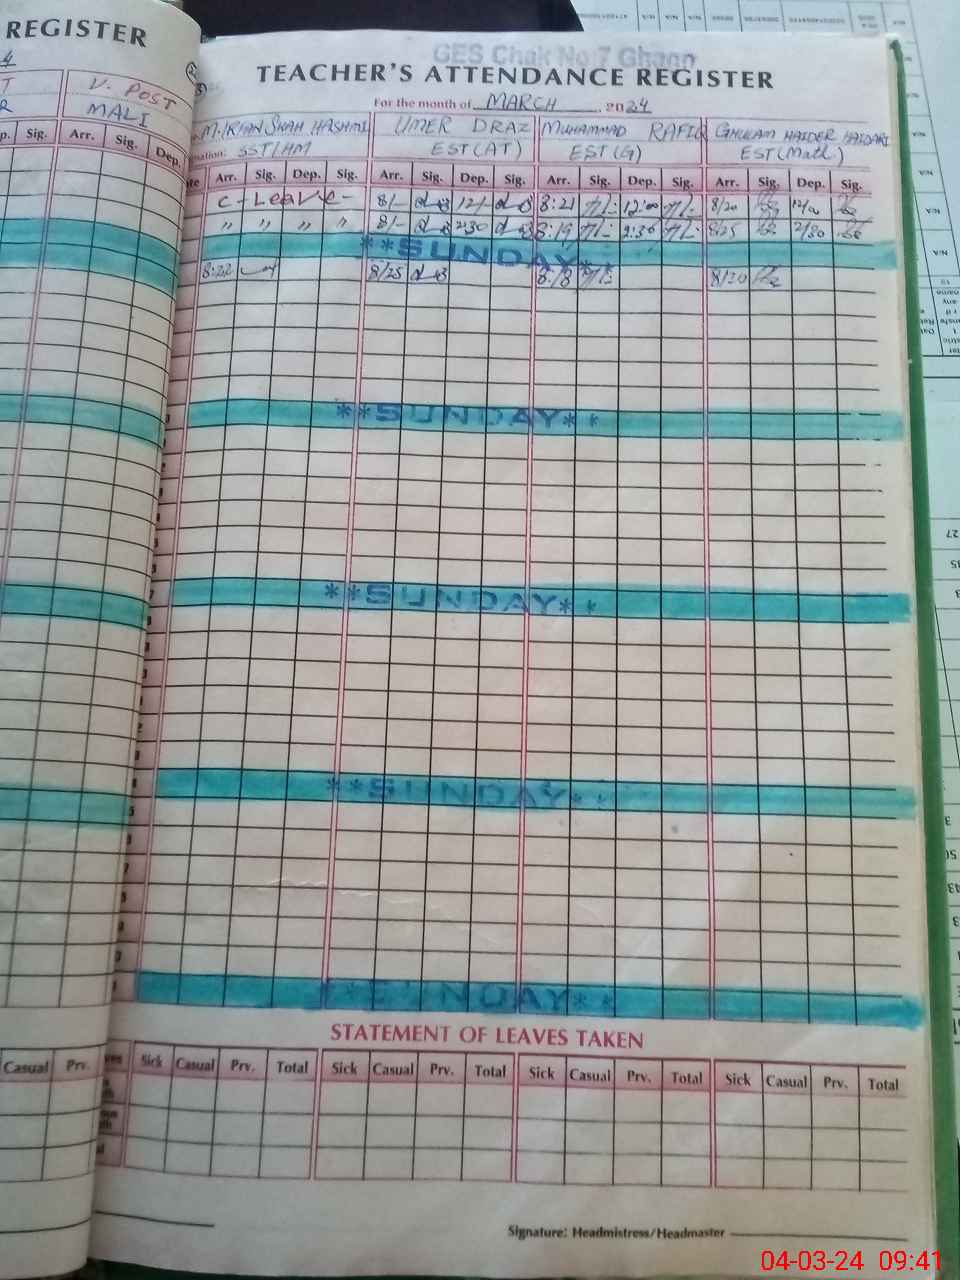 REGISTER
V. POST
MALI
Sig. Arr. Sig. Dep.
GES Chak No 7 Ghagn
TEACHER'S ATTENDANCE REGISTER
For the month of MARCH, 2024
M. IRFAN SHAH HASHMI UMER DRAZ MUHAMMAD RAFIQ GHULAM HAIDER HAIDARI
SST/HM EST(AT) EST(G) EST(Math)
Arr. Sig. Dep. Sig. Arr. Sig. Dep. Sig. Arr. Sig. Dep. Sig. Arr. Sig. Dep. Sig.
C - Leave - 8/- 12/- 8:21 12:00 8/20
" " " " 8/- 2:30 8:19 2:30 8/25 2/30
**SUNDAY**
8:22 8/25 8:18 8/20
**SUNDAY**
**SUNDAY**
**SUNDAY**
SUNDAY**
STATEMENT OF LEAVES TAKEN
Casual Prv. Sick Casual Prv. Total Sick Casual Prv. Total Sick Casual Prv. Total Sick Casual Prv. Total
Signature: Headmistress/Headmaster
04-03-24 09:41